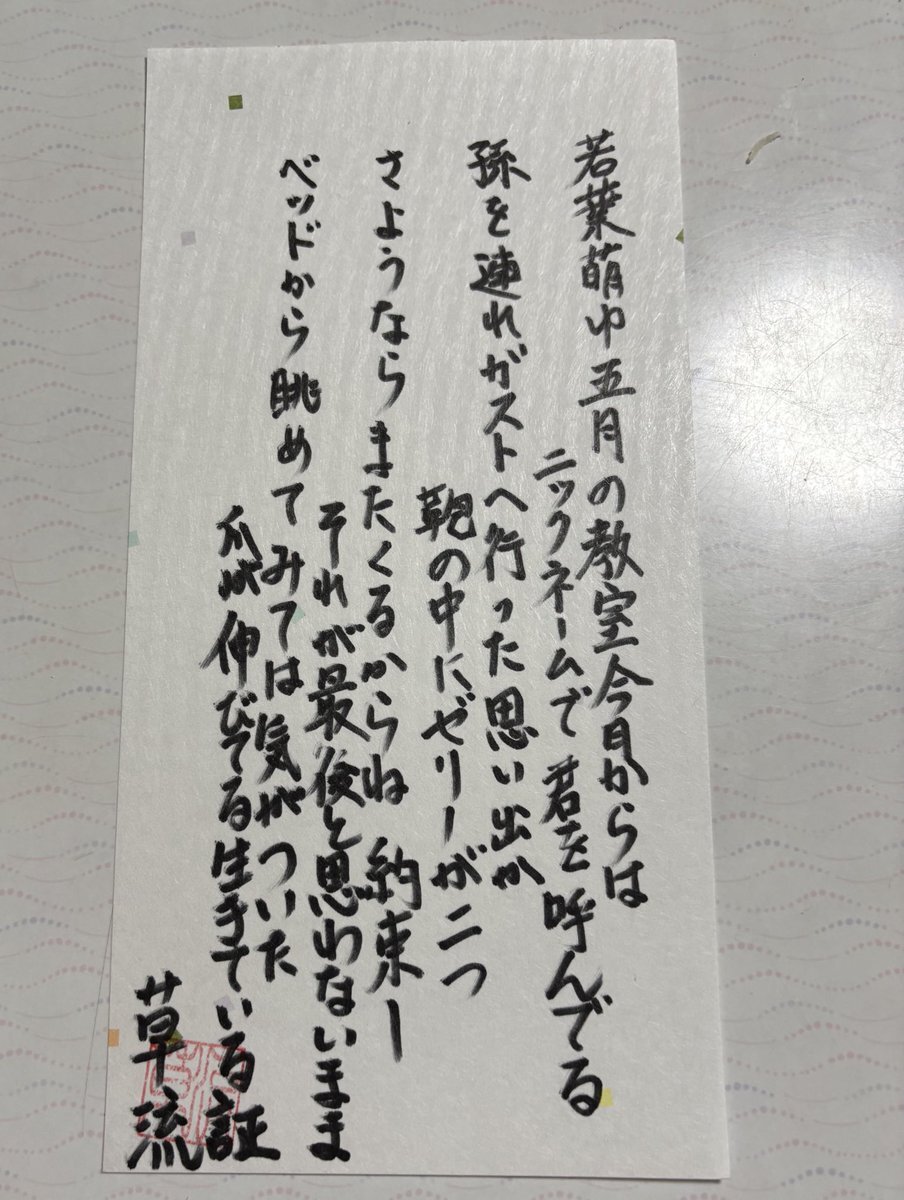 若葉萌ゆ五月の教室今日からは
ニックネームで君を呼んでる
孫を連れガストへ行った思い出か
鞄の中にゼリーが二つ
さようならまたくるからね約束ー
それが最後と思わないまま
ベッドから眺めてみては気がついた
爪が伸びてる生きている証
草流